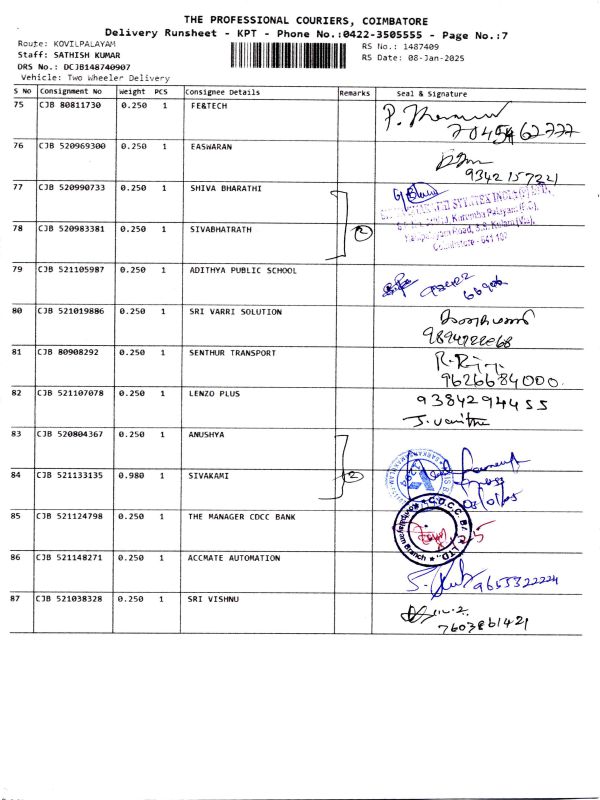 THE PROFESSIONAL COURIERS, COIMBATORE
Delivery Runsheet - KPT - Phone No.:0422-3505555 - Page No.:7
Route: KOVILPALAYAM
RS No.: 1487409
Staff: SATHISH KUMAR
RS Date: 08-Jan-2025
DRS No.: DCJB148740907
Vehicle: Two Wheeler Delivery
S No Consignment No Weight PCS Consignee Details Remarks Seal & Signature
75 CJB 80811730 0.250 1 FE&TECH
76 CJB 520969300 0.250 1 EASWARAN
9342157221
77 CJB 520990733 0.250 1 SHIVA BHARATHI
78 CJB 520983381 0.250 1 SIVABHATRATH 2
79 CJB 521105987 0.250 1 ADITHYA PUBLIC SCHOOL
80 CJB 521019886 0.250 1 SRI VARRI SOLUTION
81 CJB 80908292 0.250 1 SENTHUR TRANSPORT
9626684000.
82 CJB 521107078 0.250 1 LENZO PLUS 9384294455
J. Vanitha
83 CJB 520804367 0.250 1 ANUSHYA
84 CJB 521133135 0.980 1 SIVAKAMI 2
85 CJB 521124798 0.250 1 THE MANAGER CDCC BANK
86 CJB 521148271 0.250 1 ACCMATE AUTOMATION
9655322224
87 CJB 521038328 0.250 1 SRI VISHNU
7603861421